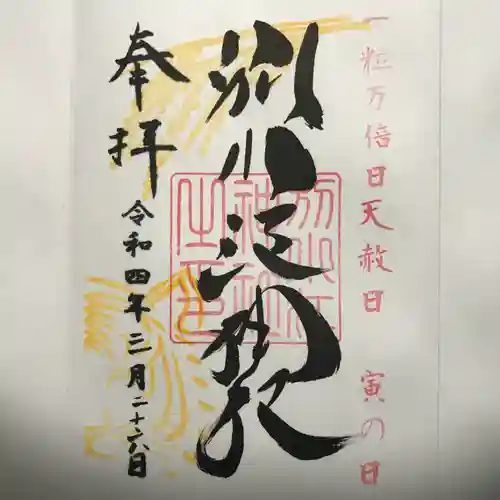 一粒万倍日天赦日 寅の日
別小江神社
奉拝
令和四年三月二十六日
別小江
神社
之印